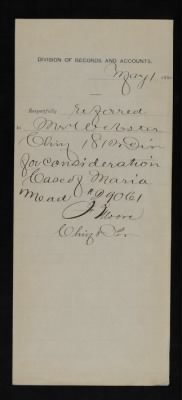 DIVISION OF RECORDS AND ACCOUNTS.
May 1
Respectfully referred
to Mr Webster
Chief 1812 Div
for consideration
Case of Maria
Mead #29061
J Moore
Chief Div